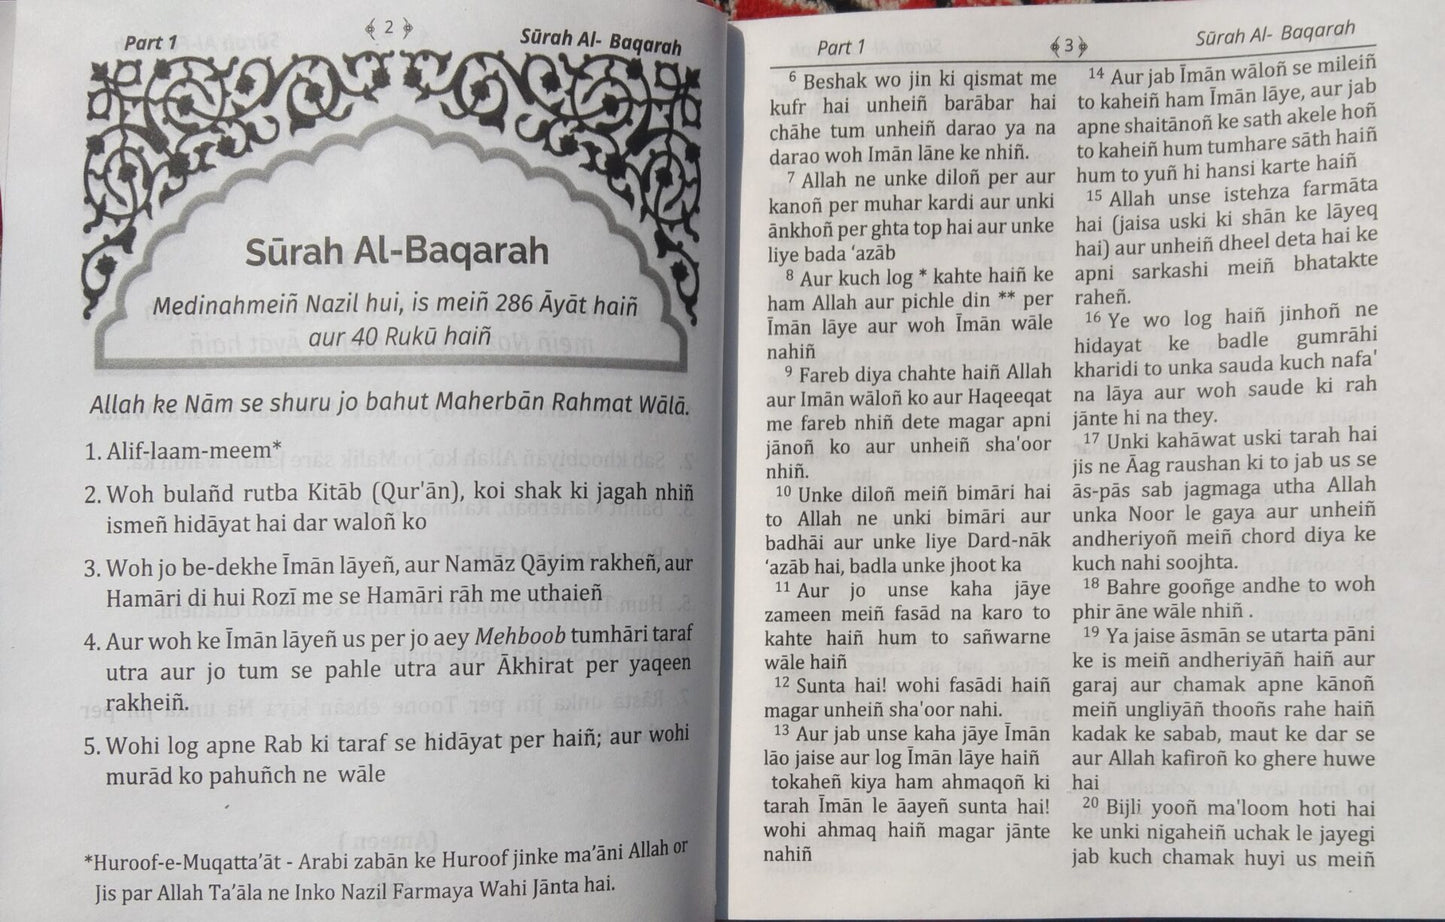 Part 1
2
Sūrah Al- Baqarah
Sūrah Al-Baqarah
Medinahmeiñ Nazil hui, is meiñ 286 Āyāt haiñ
aur 40 Rukū haiñ
Allah ke Nām se shuru jo bahut Maherbān Rahmat Wālā.
1. Alif-laam-meem*
2. Woh bulañd rutba Kitāb (Qur'ān), koi shak ki jagah nhiñ
ismeñ hidāyat hai dar waloñ ko
3. Woh jo be-dekhe Īmān lāyeñ, aur Namāz Qāyim rakheñ, aur
Hamāri di hui Rozī me se Hamāri rāh me uthaieñ
4. Aur woh ke Īmān lāyeñ us per jo aey Mehboob tumhāri taraf
utra aur jo tum se pahle utra aur Ākhirat per yaqeen
rakheiñ.
5. Wohi log apne Rab ki taraf se hidāyat per haiñ; aur wohi
murād ko pahuñch ne wāle
*Huroof-e-Muqatta’āt - Arabi zabān ke Huroof jinke ma’āni Allah or
Jis par Allah Ta’āla ne Inko Nazil Farmaya Wahi Jānta hai.
Part 1
3
Sūrah Al- Baqarah
6 Beshak wo jin ki qismat me
kufr hai unheiñ barābar hai
chāhe tum unheiñ darao ya na
darao woh Imān lāne ke nhiñ.
7 Allah ne unke diloñ per aur
kanoñ per muhar kardi aur unki
ānkhoñ per ghta top hai aur unke
liye bada ‘azāb
8 Aur kuch log * kahte haiñ ke
ham Allah aur pichle din ** per
Īmān lāye aur woh Īmān wāle
nahiñ
9 Fareb diya chahte haiñ Allah
aur Imān wāloñ ko aur Haqeeqat
me fareb nhiñ dete magar apni
jānoñ ko aur unheiñ sha'oor
nhiñ.
10 Unke diloñ meiñ bimāri hai
to Allah ne unki bimāri aur
badhāi aur unke liye Dard-nāk
‘azāb hai, badla unke jhoot ka
11 Aur jo unse kaha jāye
zameen meiñ fasād na karo to
kahte haiñ hum to sañwarne
wāle haiñ
12 Sunta hai! wohi fasādi haiñ
magar unheiñ sha'oor nahi.
13 Aur jab unse kaha jāye Īmān
lāo jaise aur log Īmān lāye haiñ
tokaheñ kiya ham ahmaqoñ ki
tarah Īmān le āayeñ sunta hai!
wohi ahmaq haiñ magar jānte
nahiñ
14 Aur jab Īmān wāloñ se mileiñ
to kaheiñ ham Īmān lāye, aur jab
apne shaitānoñ ke sath akele hoñ
to kaheiñ hum tumhare sāth haiñ
hum to yuñ hi hansi karte haiñ
15 Allah unse istehza farmāta
hai (jaisa uski ki shān ke lāyeq
hai) aur unheiñ dheel deta hai ke
apni sarkashi meiñ bhatakte
raheñ.
16 Ye wo log haiñ jinhoñ ne
hidayat ke badle gumrāhi
kharidi to unka sauda kuch nafa'
na lāya aur woh saude ki rah
jānte hi na they.
17 Unki kahāwat uski tarah hai
jis ne Āag raushan ki to jab us se
ās-pās sab jagmaga utha Allah
unka Noor le gaya aur unheiñ
andheriyoñ meiñ chord diya ke
kuch nahi soojhta.
18 Bahre gooñge andhe to woh
phir āne wāle nhiñ .
19 Ya jaise āsmān se utarta pāni
ke is meiñ andheriyāñ haiñ aur
garaj aur chamak apne kānoñ
meiñ ungliyāñ thooñs rahe haiñ
kadak ke sabab, maut ke dar se
aur Allah kafiroñ ko ghere huwe
hai
20 Bijli yooñ ma'loom hoti hai
ke unki nigaheiñ uchak le jayegi
jab kuch chamak huyi us meiñ